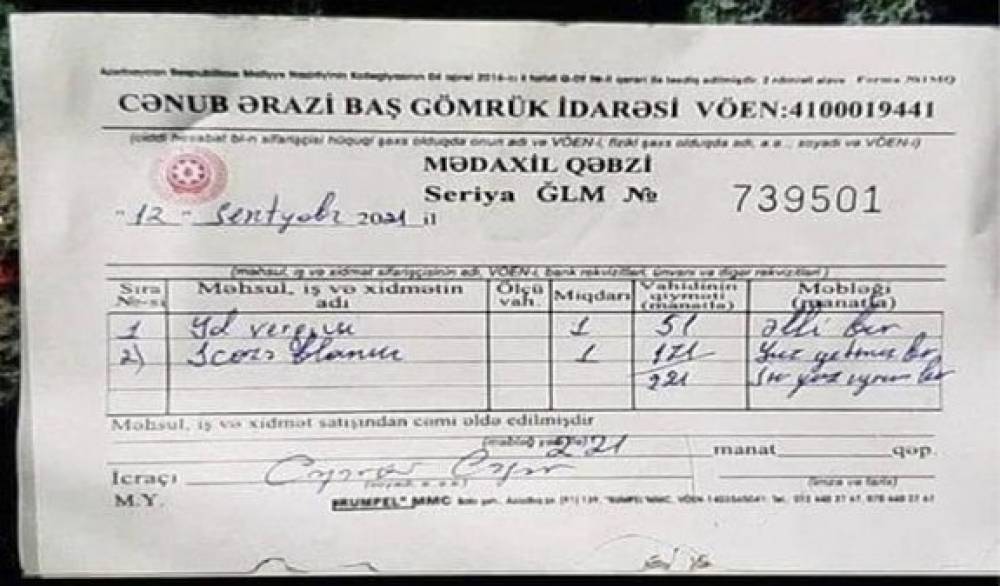 Azərbaycan Respublikası Maliyyə Nazirliyinin Kollegiyasının 04 aprel 2016-cı il tarixli Q-09 №-li qərarı ilə təsdiq edilmişdir. 2 nömrəli əlavə Forma
CƏNUB ƏRAZİ BAŞ GÖMRÜK İDARƏSİ VÖEN:4100019441
(ciddi hesabat bl-n sifarişçisi hüquqi şəxs olduqda onun adı və VÖEN-i, fiziki şəxs olduqda adı, a.a., soyadı və VÖEN-i)
MƏDAXİL QƏBZİ
Seriya ĞLM № 739501
"12" sentyabr 2021 il
(məhsul, iş və xidmət sifarişçisinin adı, VÖEN-i, bank rekvizitləri, ünvanı və digər rekvizitləri)
Sıra №-si Məhsul, iş və xidmətin adı Ölçü vah. Miqdarı Vahidinin qiyməti (manatla) Məbləği (manatla)
1 Yol vergisi 1 51 əlli bir
2) 1 171 Yüz yetmiş bir
221
Məhsul, iş və xidmət satışından cəmi əldə edilmişdir
221 manat qəp.
İcraçı
(imza və tarix)
M.Y. "RUMPEL" MMC